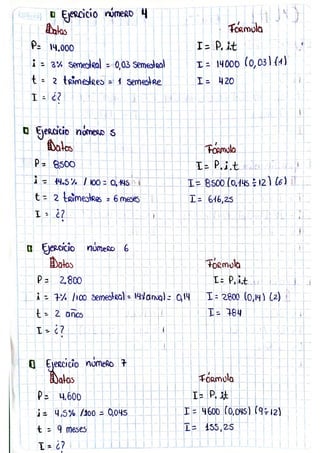 Ejercicio número 4
Datos Fórmula
P= 14.000 I = P. i.t
i = 3% semestral = 0,03 semestral I = 14000 (0,03) (1)
t = 2 trimestres = 1 semestre I = 420
I = ¿?
Ejercicio número 5
Datos Fórmula
P= 8500 I= P.i.t
i = 14.5% / 100 = 0,145 I = 8500 (0,145 ÷ 12) (6)
t = 2 trimestres = 6 meses I = 616,25
I = ¿?
Ejercicio número 6
Datos Fórmula
P= 2.800 I= P.i.t
i = 7% /100 semestral = 14%anual = 0,14 I = 2800 (0,14) (2)
t = 2 años I = 784
I = ¿?
Ejercicio número 7
Datos Fórmula
P= 4.600 I= P. i.t
i = 4,5% /100 = 0,045 I = 4600 (0,045) (9÷12)
t = 9 meses I = 155,25
I = ¿?